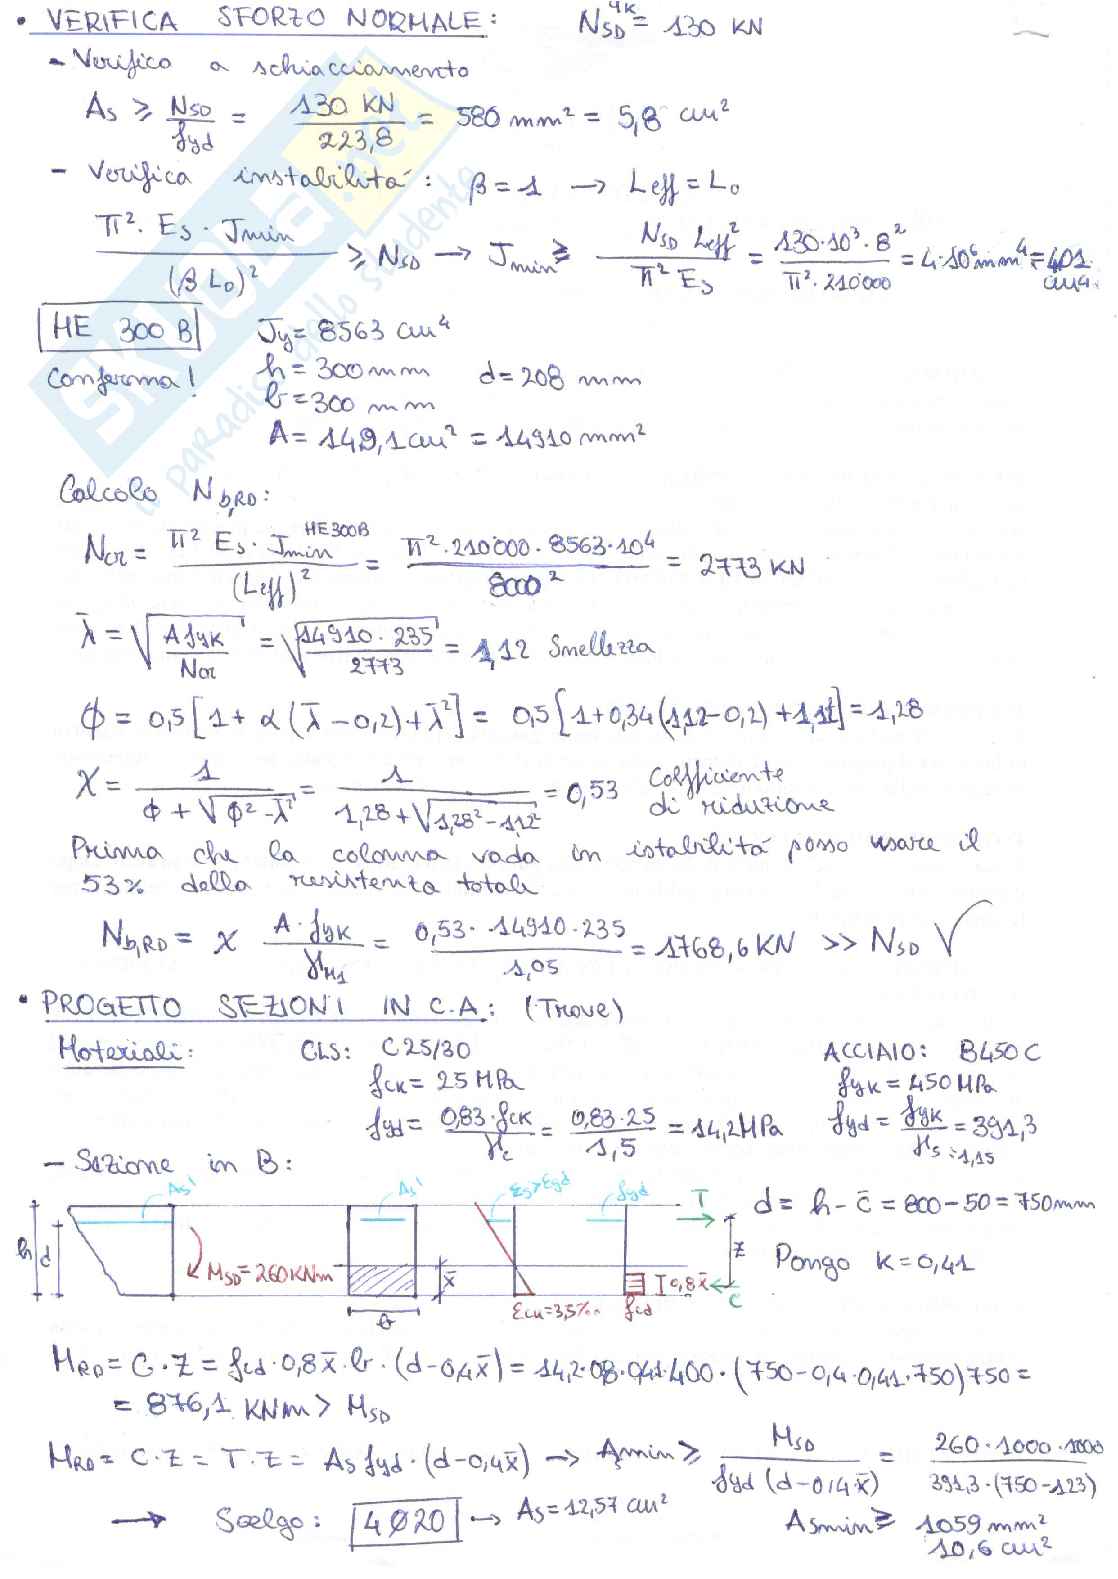 • VERIFICA SFORZO NORMALE: N_SD^4K = 130 KN
- Verifico a schiacciamento
As ⩾ N_SD / fyd = 130 KN / 223,8 = 580 mm² = 5,8 cm²
- Verifica instabilità: β = 1 → Leff = L₀
π² · Es · Jmin / (β L₀)² ⩾ N_SD → Jmin ⩾ N_SD Leff² / π² Es = 130·10³·8² / π²·210000 = 4·10⁶ mm⁴ = 401 cm⁴
HE 300 B Jy = 8563 cm⁴
Conferma! h = 300 mm d = 208 mm
b = 300 mm
A = 149,1 cm² = 14910 mm²
Calcolo N_b,RD:
Ncr = π² Es · Jmin^HE300B / (Leff)² = π²·210000·8563·10⁴ / 8000² = 2773 KN
λ̄ = √(A fyk / Ncr) = √(14910·235 / 2773) = 1,12 Snellezza
ϕ = 0,5 [1 + α (λ̄ - 0,2) + λ̄²] = 0,5 [1 + 0,34 (1,12 - 0,2) + 1,12²] = 1,28
χ = 1 / ϕ + √(ϕ² - λ̄²) = 1 / 1,28 + √(1,28² - 1,12²) = 0,53 Coefficiente di riduzione
Prima che la colonna vada in istabilità posso usare il
53% della resistenza totale
N_b,RD = χ A · fyk / γM1 = 0,53 · 14910 · 235 / 1,05 = 1768,6 KN >> N_SD √
• PROGETTO SEZIONI IN C.A.: (Trave)
Materiali: CLS: C25/30 ACCIAIO: B450C
fck = 25 MPa fyk = 450 MPa
fyd = 0,83·fck / γc = 0,83·25 / 1,5 = 14,2 MPa fyd = fyk / γs=1,15 = 391,3
- Sezione in B:
As' As' εs>εyd fyd T d = h - c̄ = 800 - 50 = 750 mm
h d M_SD = 260 KNm x̄ z Pongo K = 0,41
b εcu = 3,5‰ fcd 0,8x̄ C
M_RD = C · Z = fcd · 0,8x̄ · b · (d - 0,4x̄) = 14,2·0,8·0,41·400 · (750 - 0,4·0,41·750)750 =
= 876,1 KNm > M_SD
M_RD = C·Z = T·Z = As fyd · (d - 0,4x̄) → Asmin ⩾ M_SD / fyd (d - 0,4·x̄) = 260·1000·1000 / 391,3·(750 - 123)
→ Scelgo: 4Ø20 → As = 12,57 cm² Asmin ⩾ 1059 mm²
10,6 cm²